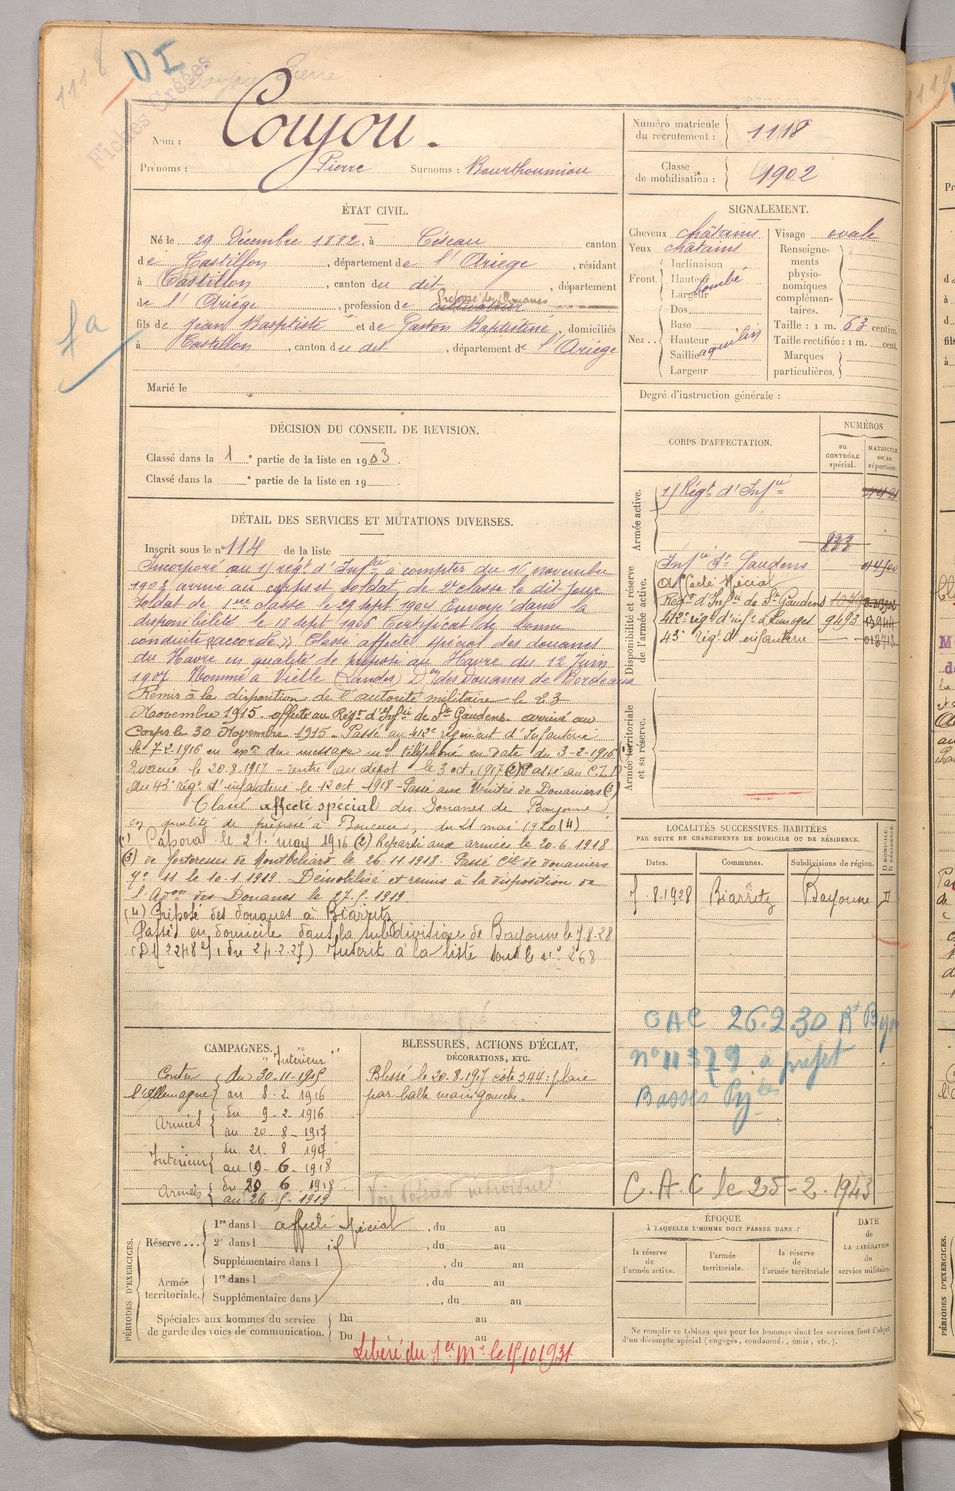 1118
DI
Fiches Croisées
Nom : Coujou.
Prénoms : Pierre Surnoms : Bourthoumiou
Numéro matricule du recrutement : 1118
Classe de mobilisation : 1902
ÉTAT CIVIL.
Né le 29 Décembre 1882, à Cescau canton
de Castillon, département de l'Ariège, résidant
à Castillon, canton du dit, département
Préposé des Douanes
de l'Ariège, profession de cultivateur
fils de Jean Baptiste et de Gaston Baptistine, domiciliés
à Castillon, canton du dit, département de l'Ariège
Marié le
fa
SIGNALEMENT.
Cheveux châtains
Yeux châtains
Front. Inclinaison
Hauteur bombé
Largeur
Nez.. Dos
Base
Hauteur
Saillie aquilin
Largeur
Visage ovale
Renseignements physionomiques complémentaires.
Taille : 1 m. 63 centim.
Taille rectifiée : 1 m. cent.
Marques particulières.
Degré d'instruction générale :
DÉCISION DU CONSEIL DE REVISION.
Classé dans la 1e partie de la liste en 1903.
Classé dans la e partie de la liste en 19
CORPS D'AFFECTATION.
NUMÉROS
au CONTRÔLE spécial.
MATRICULE ou au répertoire.
Armée active.
Régt d'Infie
833
Disponibilité et réserve de l'armée active.
Infie St Gaudens
Affecté spécial
Régt d'Infie de St Gaudens
412e régt d'infie Limoges 9493
43e régt d'infanterie
Armée territoriale et sa réserve.
DÉTAIL DES SERVICES ET MUTATIONS DIVERSES.
Inscrit sous le n° 114 de la liste
Incorporé au régt d'Infie à compter du 16 novembre
1903 arrivé au corps et soldat de 2e classe le dit jour
Soldat de 1ère classe le 29 sept 1904 Envoyé dans la
disponibilité le 18 sept 1906 Certificat de bonne
conduite "accordé" Classé affecté spécial des douanes
du Havre en qualité de préposé au Havre du 12 Juin
1907 Nommé à Vielle (Landes) Don des Douanes de Bordeaux
Remis à la disposition de l'autorité militaire le 23
Novembre 1915. affecté au Régt d'Infie de St Gaudens. arrivé au
Corps le 30 Novembre 1915. Passé au 412e régiment d'Infanterie
le 7-2-1916 en du message téléphoné en date du 3-2-1916
Evacué le 20.8.1917 - rentré au dépôt le 3 oct. 1917 (2) Passé au C.I.D
du 43e régt d'infanterie le 12 oct 1918 - Passé aux Unités de Douaniers (3)
Classé affecté spécial des Douanes de Bayonne
en qualité de préposé à Boucau, du 21 mai 1920 (4)
(1) Caporal le 21 may 1916 (2) Reparti aux armées le 20.6.1918
(3) de forteresse de Montbéliard le 26.11.1918. Passé Cie de douaniers
n° 11 le 10-1-1919. Démobilisé et remis à la disposition de
l'Adon des Douanes le 27.5.1919.
(4) Préposé des douanes à Biarritz
Passé en domicile dans la subdivision de Bayonne le 7-8-28
Inscrit à la liste sous le n° 268
LOCALITÉS SUCCESSIVES HABITÉES
PAR SUITE DE CHANGEMENTS DE DOMICILE OU DE RÉSIDENCE.
Dates. Communes. Subdivisions de région.
D. DOMICILE. R. RÉSIDENCE.
7.8.1928 Biarritz Bayonne D
CAC 26.2.30 Rt Bayon
n° 11379 à préfet
Basses Pyées
C.A.C le 25-2-1943
CAMPAGNES.
"Intérieur"
Contre l'Allemagne du 30-11-1915
au 8-2-1916
Armées du 9-2-1916
au 20-8-1917
Intérieur du 21-8-1917
au 19-6-1918
Armées du 20 6 1918
au 26-5-1919
BLESSURES, ACTIONS D'ÉCLAT,
DÉCORATIONS, ETC.
Blessé le 20-8-1917 côte 344. plaie
par balle main gauche.
Voir dossier individuel.
PÉRIODES D'EXERCICES.
Réserve... 1re dans l affecté spécial, du au
2e dans l , du au
Supplémentaire dans l , du au
Armée territoriale. 1re dans l , du au
Supplémentaire dans l , du au
Spéciales aux hommes du service de garde des voies de communication. Du au
Du au
Libéré du Sce Mre le 15.10.1931
ÉPOQUE
À LAQUELLE L'HOMME DOIT PASSER DANS :
la réserve de l'armée active.
l'armée territoriale.
la réserve de l'armée territoriale
DATE de LA LIBÉRATION du service militaire.
Ne remplir ce tableau que pour les hommes dont les services font l'objet
d'un décompte spécial (engagés, condamné, omis, etc.).